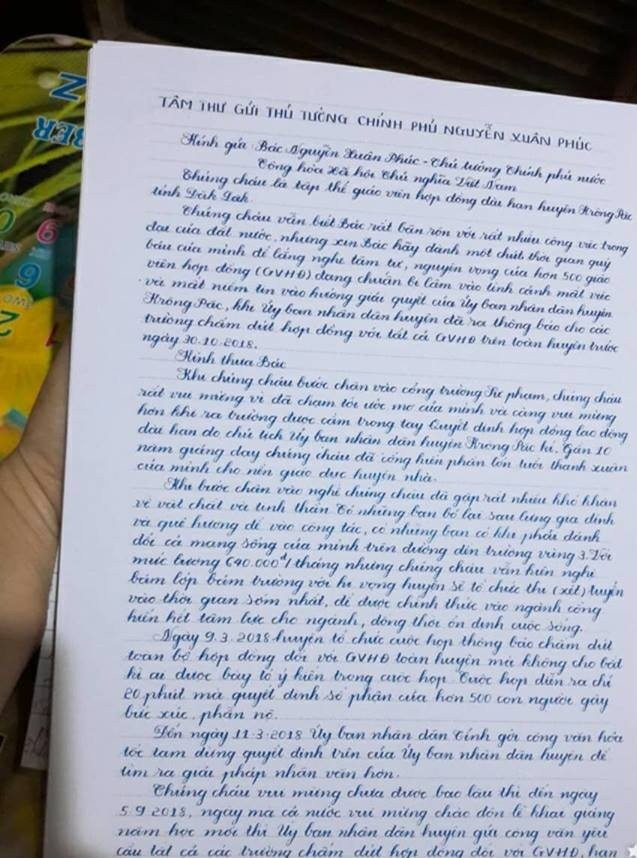 TÂM THƯ GỬI THỦ TƯỚNG CHÍNH PHỦ NGUYỄN XUÂN PHÚC
Kính gửi: Bác Nguyễn Xuân Phúc - Thủ tướng Chính phủ nước
Cộng hòa xã hội Chủ nghĩa Việt Nam
Chúng cháu là tập thể giáo viên hợp đồng dài hạn huyện Krông Pắc
tỉnh Đắk Lắk
Chúng cháu vẫn biết Bác rất bận rộn với rất nhiều công việc trọng
đại của đất nước, nhưng xin Bác hãy dành một chút thời gian quý
báu của mình để lắng nghe tâm tư, nguyện vọng của hơn 500 giáo
viên hợp đồng (GVHĐ) đang chuẩn bị lâm vào tình cảnh mất việc
và mất niềm tin vào hướng giải quyết của Ủy ban nhân dân huyện
Krông Pắc, khi Ủy ban nhân dân huyện đã ra thông báo cho các
trường chấm dứt hợp đồng với tất cả GVHĐ trên toàn huyện trước
ngày 30.10.2018.
Kính thưa Bác
Khi chúng cháu bước chân vào cổng trường Sư phạm, chúng cháu
rất vui mừng vì đã chạm tới ước mơ của mình và càng vui mừng
hơn khi ra trường được cầm trong tay Quyết định hợp đồng lao động
dài hạn do chủ tịch Ủy ban nhân dân huyện Krông Pắc kí. Gần 10
năm giảng dạy chúng cháu đã cống hiến phần lớn tuổi thanh xuân
của mình cho nền giáo dục huyện nhà.
Khi bước chân vào nghề chúng cháu đã gặp rất nhiều khó khăn
về vật chất và tinh thần. Có những bạn bỏ lại sau lưng gia đình
và quê hương để vào công tác, có những bạn có khi phải đánh
đổi cả mạng sống của mình trên đường đến trường vùng 3. Với
mức lương 690.000đ/tháng nhưng chúng cháu vẫn kiên nghị
bám lớp bám trường với hi vọng huyện sẽ tổ chức thi (xét) tuyển
vào thời gian sớm nhất, để được chính thức vào ngành cống
hiến hết tâm lực cho ngành, đồng thời ổn định cuộc sống.
Ngày 9.3.2018 huyện tổ chức cuộc họp thông báo chấm dứt
toàn bộ hợp đồng đối với GVHĐ toàn huyện mà không cho bất
kì ai được bày tỏ ý kiến trong cuộc họp. Cuộc họp diễn ra chỉ
20 phút mà quyết định số phận của hơn 500 con người gây
bức xúc, phẫn nộ.
Đến ngày 11.3.2018 Ủy ban nhân dân tỉnh gửi công văn hỏa
tốc tạm dừng quyết định trên của Ủy ban nhân dân huyện để
tìm ra giải pháp nhân văn hơn.
Chúng cháu vui mừng chưa được bao lâu thì đến ngày
5.9.2018, ngày mà cả nước vui mừng chào đón lễ khai giảng
năm học mới thì Ủy ban nhân dân huyện gửi công văn yêu
cầu tất cả các trường chấm dứt hợp đồng đối với GVHĐ, hạn